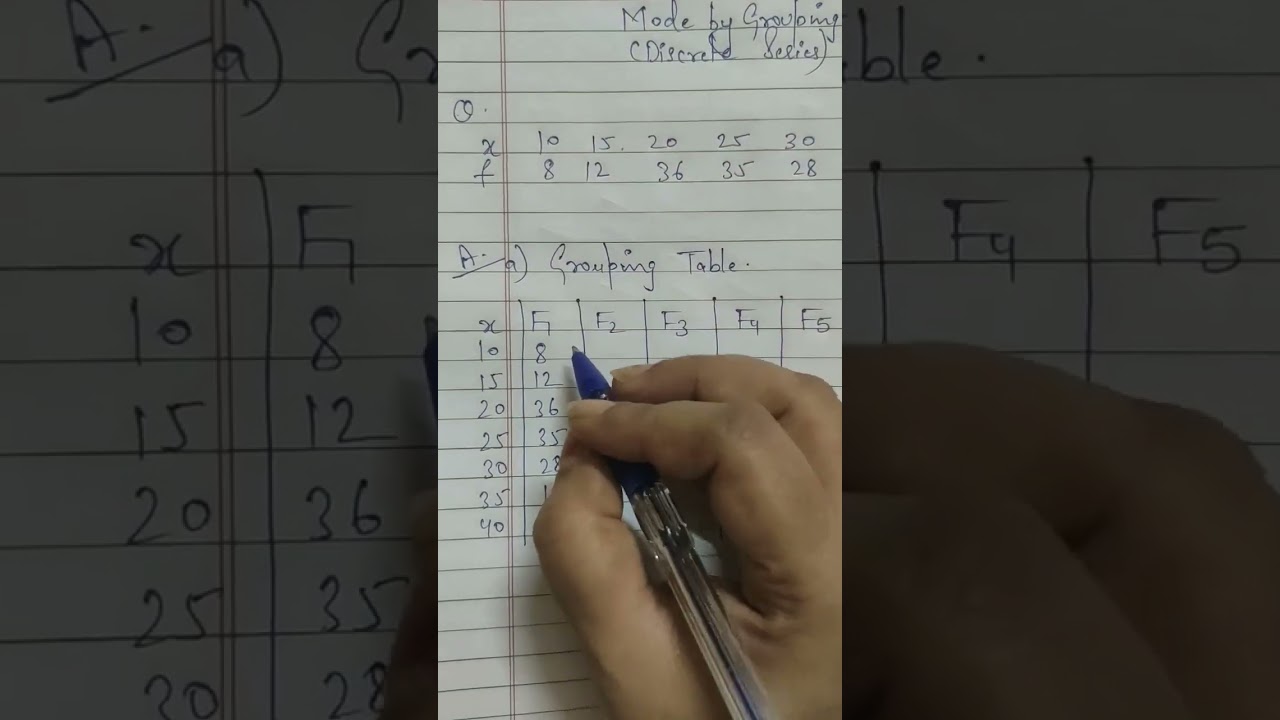 Mode by Grouping
(Discrete Series)
Q.
x 10 15. 20 25 30
f 8 12 36 35 28
A. a) Grouping Table.
x F1 F2 F3 F4 F5
10 8
15 12
20 36
25 35
30 28
35
40